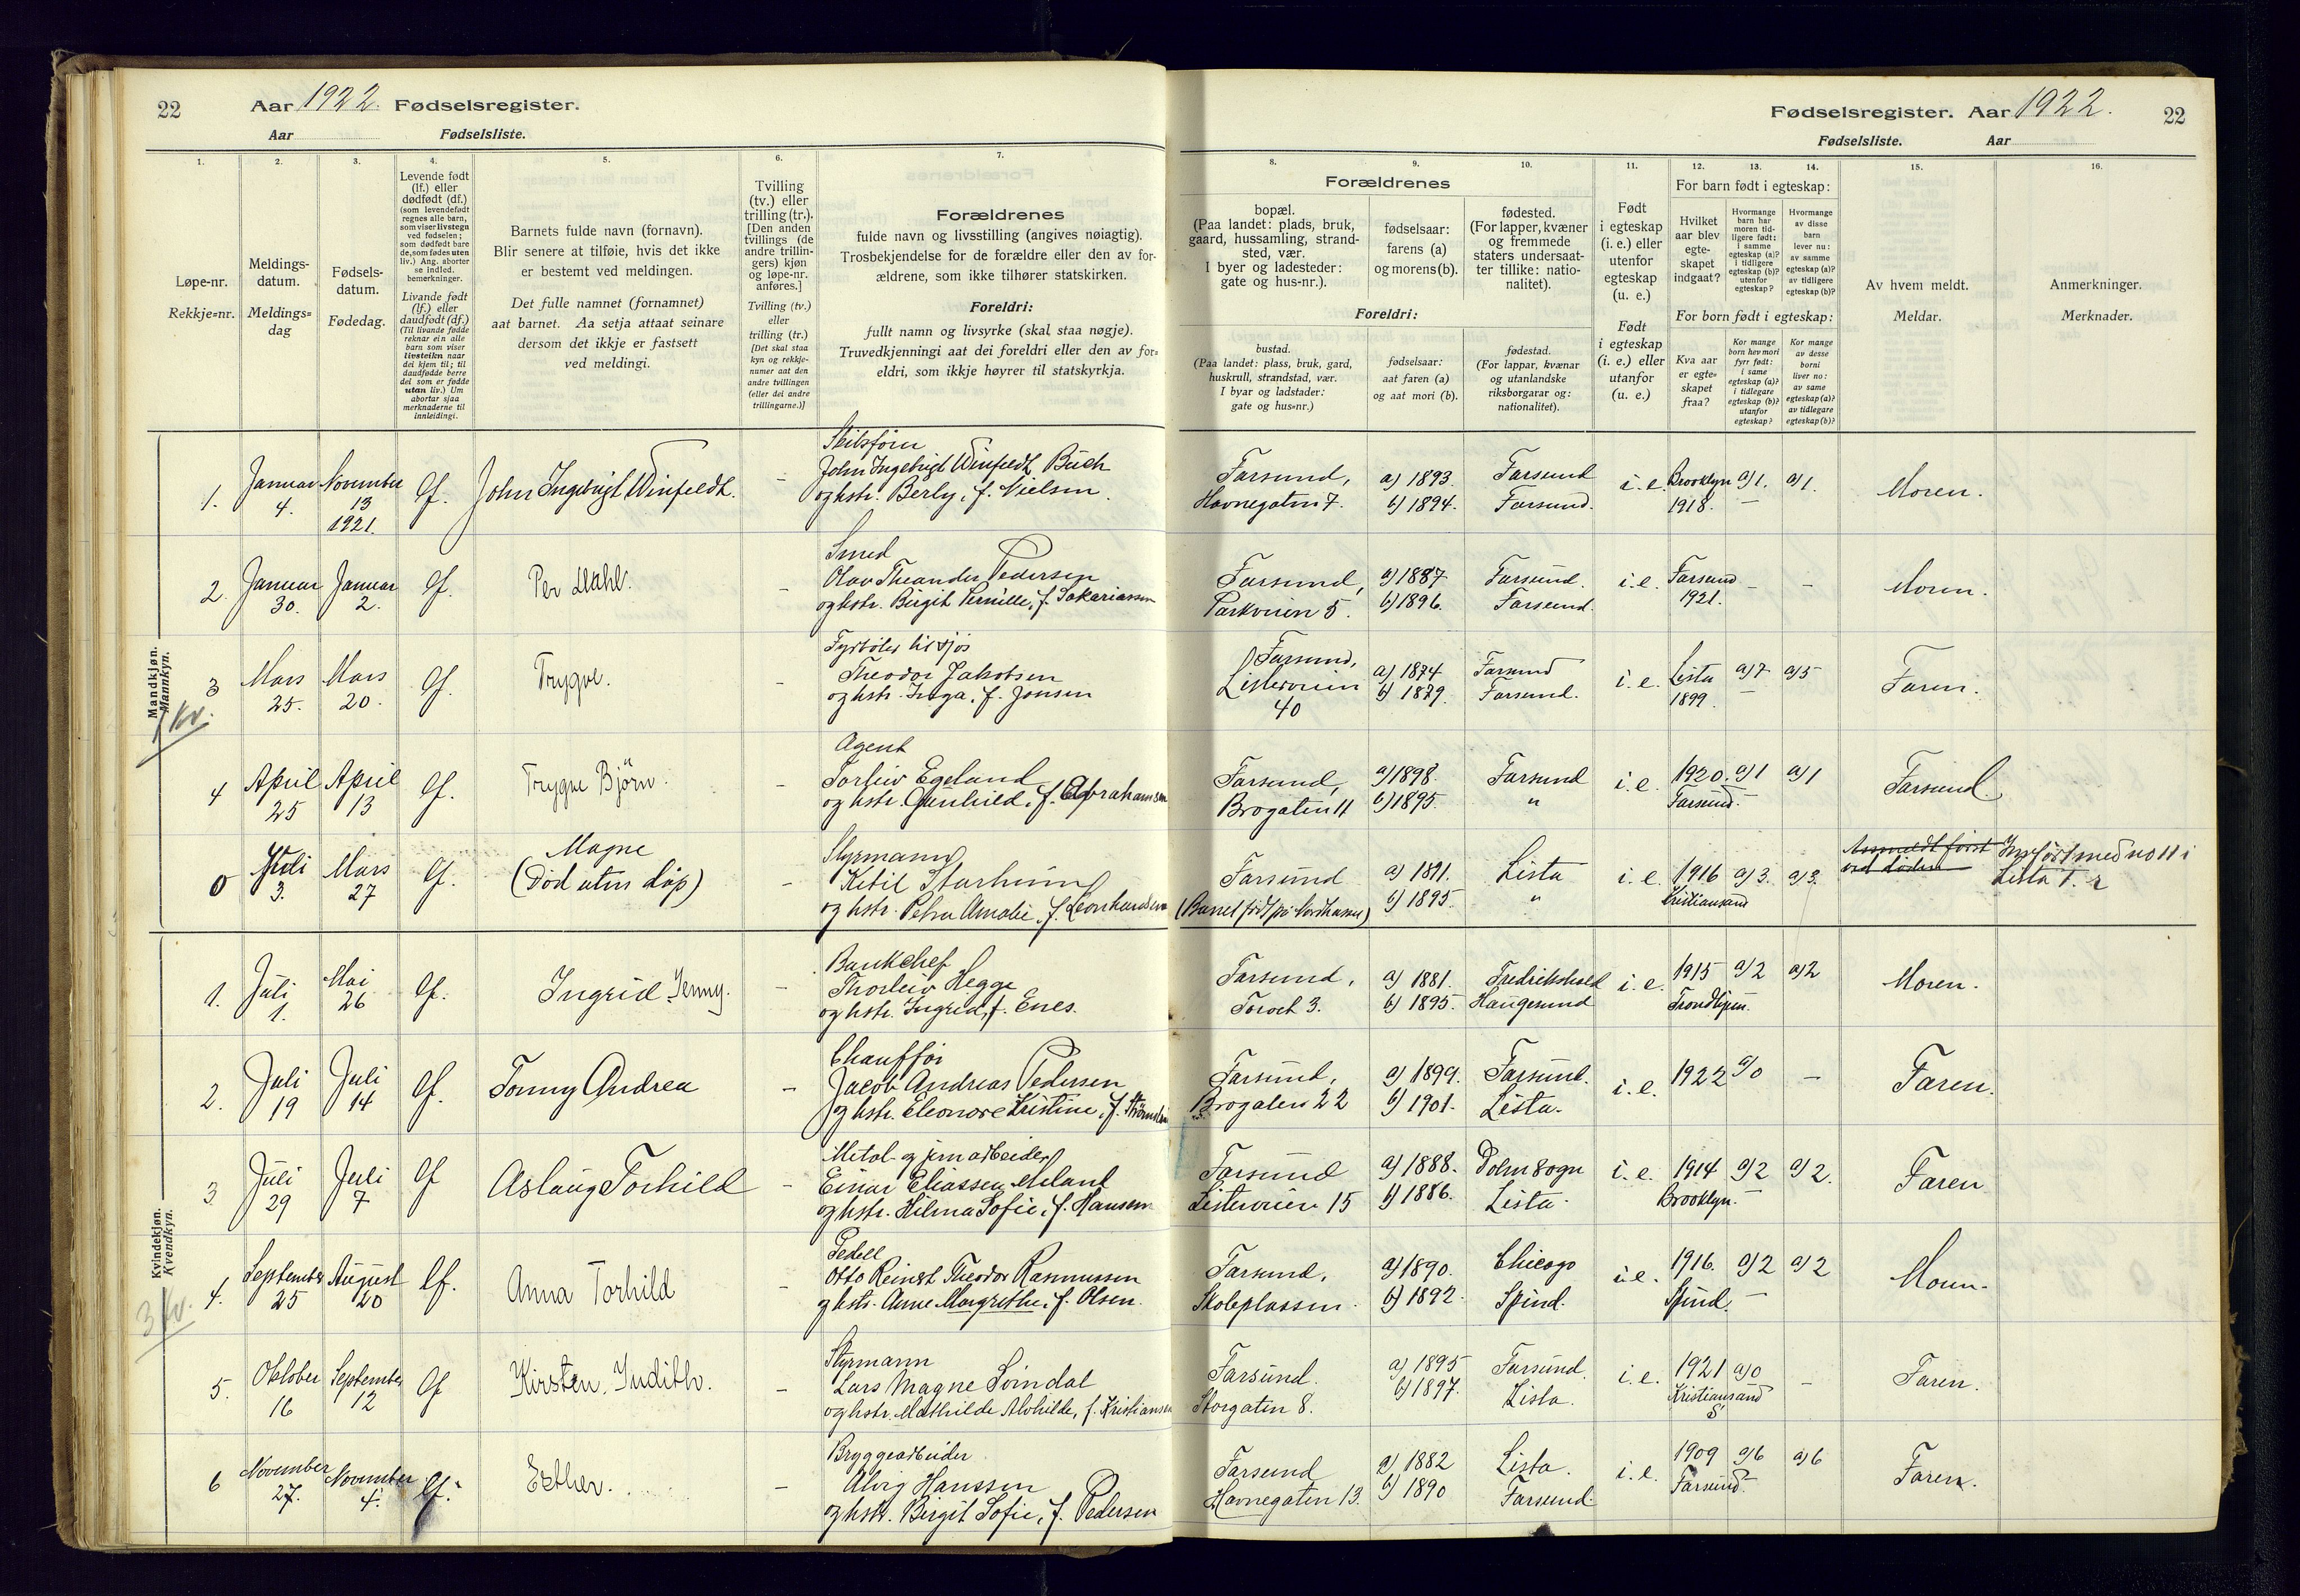 22 Aar 1922. Fødselsregister.
Aar Fødselsliste.
1. 2. 3. 4. 5. 6. 7.
Løpe-nr.
Rekkje=nr.
Meldings-
datum.
Meldings=
dag
Fødsels-
datum.
Fødedag.
Levende født
(lf.) eller
dødfødt (df.)
(som levendefødt
regnes alle barn,
som viser livstegn
ved fødselen;
som dødfødt bare
de, som fødes uten
liv.) Ang. aborter
se indled.
bemerkninger.
Livande født
(lf.) eller
daudfødt (df.)
(Til livande fødde
reknar ein alle
barn som viser
livsteikn naar
dei kjem til; til
daudfødde berre
dei som er fødde
utan liv.) Um
abortar sjaa
merknaderne til
innleidingi.
Barnets fulde navn (fornavn).
Blir senere at tilføie, hvis det ikke
er bestemt ved meldingen.
Det fulle namnet (fornamnet)
aat barnet. Aa setja attaat seinare
dersom det ikkje er fastsett
ved meldingi.
Tvilling
(tv.) eller
trilling (tr.).
[Den anden
tvillings (de
andre trillin-
gers) kjøn
og løpe-nr.
anføres.]
Tvilling (tv.)
eller
trilling (tr.)
[Det skal staa
kyn og rekkje-
numer aat den
andre tvillingen
(eller dei andre
trillingarne.)]
Forældrenes
fulde navn og livsstilling (angives nøiagtig).
Trosbekjendelse for de forældre eller den av for-
ældrene, som ikke tilhører statskirken.
Foreldri:
fullt namn og livsyrke (skal staa nøgje).
Truvedkjenningi aat dei foreldri eller den av for=
eldri, som ikkje høyrer til statskyrkja.
Mandkjøn.
Mannkyn.
1 Kv.
1. Januar 4. November 13 1921. lf. John Ingebrigt Winfeldt. -
Skibsfører
John Ingebrigt Winfeldt Buch
og hstr. Berly, f. Nielsen.
2. Januar 30. Januar 2. lf. Per Dahl. -
Smed
Olav Theander Pedersen
og hstr. Birgit Pernille, f. Sakariassen
3 Mars 25. Mars 20. lf. Trygve. -
Fyrbøter
Theodor Jakobsen
og hstr. Inga, f. Jonsen
4 April 25 April 13 lf. Trygve Bjørn. -
Agent
Torleiv Egeland
og hstr. Gunhild, f. Abrahamsen
0 Juli 3. Mars 27 lf. Magne
(Død uten dåp) -
Styrmann
Ketil Starheim
og hstr. Petra Amalie, f. Leonhardsen
Kvindekjøn.
Kvendkyn.
3 Kv.
1. Juli 1. Mai 26 lf. Ingrid Jenny. -
Bankchef
Thorleiv Hegge
og hstr. Ingrid, f. Enes.
2. Juli 19 Juli 14 lf. Tonny Andrea -
Chauffør
Jacob Andreas Pedersen
og hstr. Eleonore Kristine, f.
3. Juli 29 Juli 7 lf Aslaug Torhild -
Metal- og jernarbeider
Einar Eliassen Meland
og hstr. Hilma Sofie, f. Hansen
4. September 25 August 20 lf. Anna Torhild -
Pedell
Otto Reinert Theodor Rasmussen
og hstr. Anne Margrethe, f. Olsen.
5. Oktober 16 September 12 lf Kirsten Judith. -
Styrmann
Lars Magne Søindal
og hstr. Mathilde Alvhilde, f. Kristiansen
6 November 27. November 4. lf. Esther. -
Bryggearbeider
Alvig Hanssen
og hstr. Birgit Sofie, f. Pedersen
Fødselsregister. Aar 1922. 22
Fødselsliste. Aar
8. 9. 10. 11. 12. 13. 14. 15. 16.
Forældrenes
bopæl.
(Paa landet: plads, bruk,
gaard, hussamling, strand-
sted, vær.
I byer og ladesteder:
gate og hus-nr.).
fødselsaar:
farens (a)
og morens (b).
fødested.
(For lapper, kvæner
og fremmede
staters undersaat-
ter tillike: natio-
nalitet).
Foreldri:
bustad.
(Paa landet: plass, bruk, gard,
huskrull, strandstad, vær.
I byar og ladstader:
gate og hus=nr.)
fødselsaar:
aat faren (a)
og aat mori (b).
fødestad.
(For lappar, kvænar
og utanlandske
riksborgarar og:
nationalitet).
Født
i egteskap
(i. e.) eller
utenfor
egteskap
(u. e.)
Født
i egteskap
(i. e.) eller
utanfor
(u. e.)
For barn født i egteskap:
Hvilket
aar blev
egte-
skapet
indgaat?
Hvormange
barn har
moren tid-
ligere født:
i samme
egteskap (a)?
i tidligere
egteskap (b)?
utenfor
egteskap?
Hvormange
av disse
barn
lever nu:
av samme
egteskap (a)?
av tidligere
egteskap (b)?
For born født i egteskap:
Kva aar
er egte=
skapet
fraa?
Kor mange
born hev mori
fyrr født:
i same
egteskap (a)?
i tidlegare
egteskap (b)?
utanfor
egteskap?
Kor mange
av desse
borni
liver no:
av same
egteskap (a)?
av tidlegare
egteskap (b)?
Av hvem meldt.
Meldar.
Anmerkninger.
Merknader.
Farsund, a) 1893. Farsund i. e. Brooklyn a) 1. a) 1. Moren.
Havnegaten 7. b) 1894. Farsund. 1918. -
Farsund, a) 1887 Farsund. i. e. Farsund - - Moren.
Parkveien 5. b) 1896. Farsund. 1921.
Farsund, a) 1874 Farsund i. e. Lista a) 7 a) 5 Faren.
Listerveien b) 1879. Farsund. 1899. -
40
Farsund, a) 1898. Farsund i. e. 1920. a) 1 a) 1 Farsund.
Brogaten 11 b) 1895. " Farsund. -
Farsund a) 1891. Lista i. e. 1916 a) 3. a) 3. Anmeldt først Innført med no 11 i
(Barnet født på Nordhassel) b) 1895. " Kristiansand ved døden Lista
Farsund, a) 1881. Fredrikshald i. e. 1915 a) 2 a) 2 Moren.
Torvet 3. b) 1895. Haugesund Trondhjem.
Farsund, a) 1899. Farsund. i. e. 1922 a) 0 - Faren.
Brogaten 22 b) 1901. Lista.
Farsund a) 1888. Dolm sogn i. e. 1914 a) 2 a) 2. Faren
Listerveien 15 b) 1886. Lista. Brooklyn. -
Farsund, a) 1890. Chicago i. e. 1916. a) 2 a) 2 Moren.
Skoleplassen. b) 1892. Spind. Spind. -
Farsund. a) 1895 Farsund. i. e. 1921 a) 0 - Faren.
Storgaten 8. b) 1897. Lista. Kristiansand
S
Farsund a) 1882 Lista. i. e. 1909 a) 6 a) 6 Faren.
Havnegaten 13. b) 1890 Farsund. Farsund. -